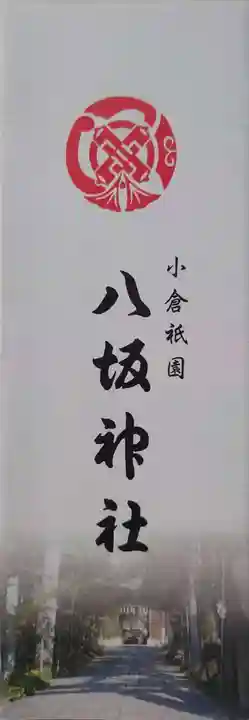 小倉祇園
八坂神社